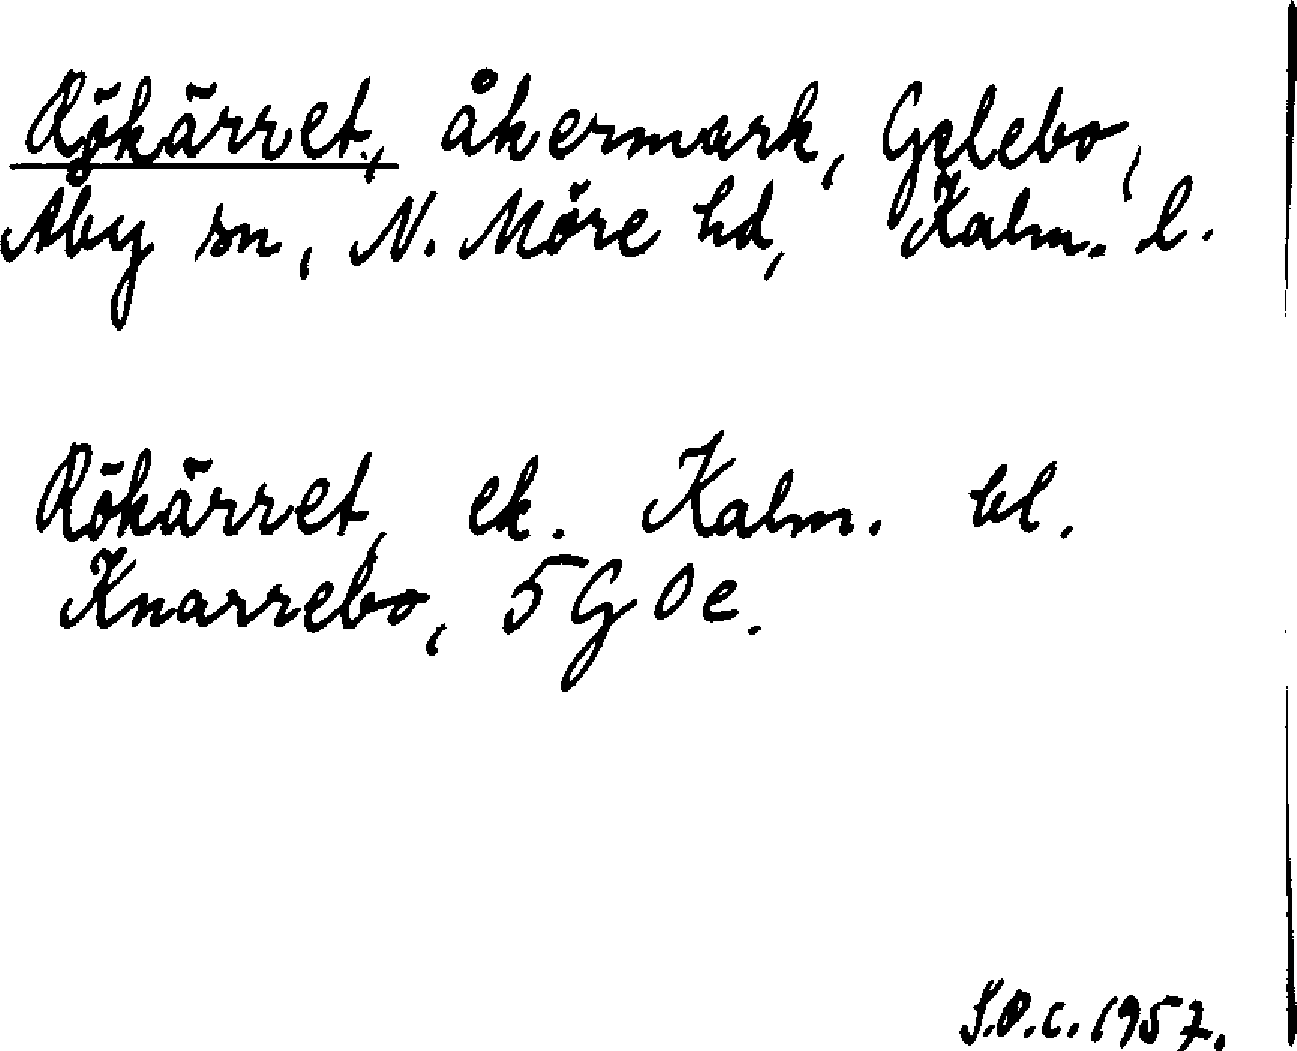 Rökärret, åkermark, Gelebo,
Åby sn, N. Möre hd, Kalm. l.
Rökärret, ek. Kalm. bl.
Knarrebo, 5 G 0 e.
S.O.C. 1957.